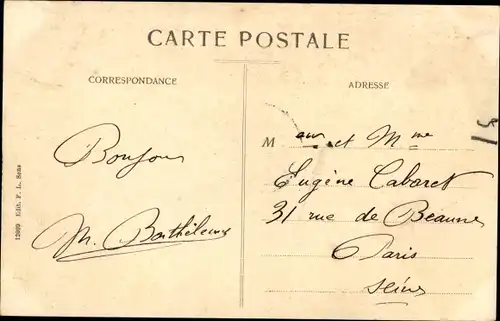 CARTE POSTALE
CORRESPONDANCE
ADRESSE
Bonjour
M. Barthélemy
M eur et Mme
Eugène Cabaret
31 rue de Beaune
Paris
Seine
12909 Edit. F. L. Sens